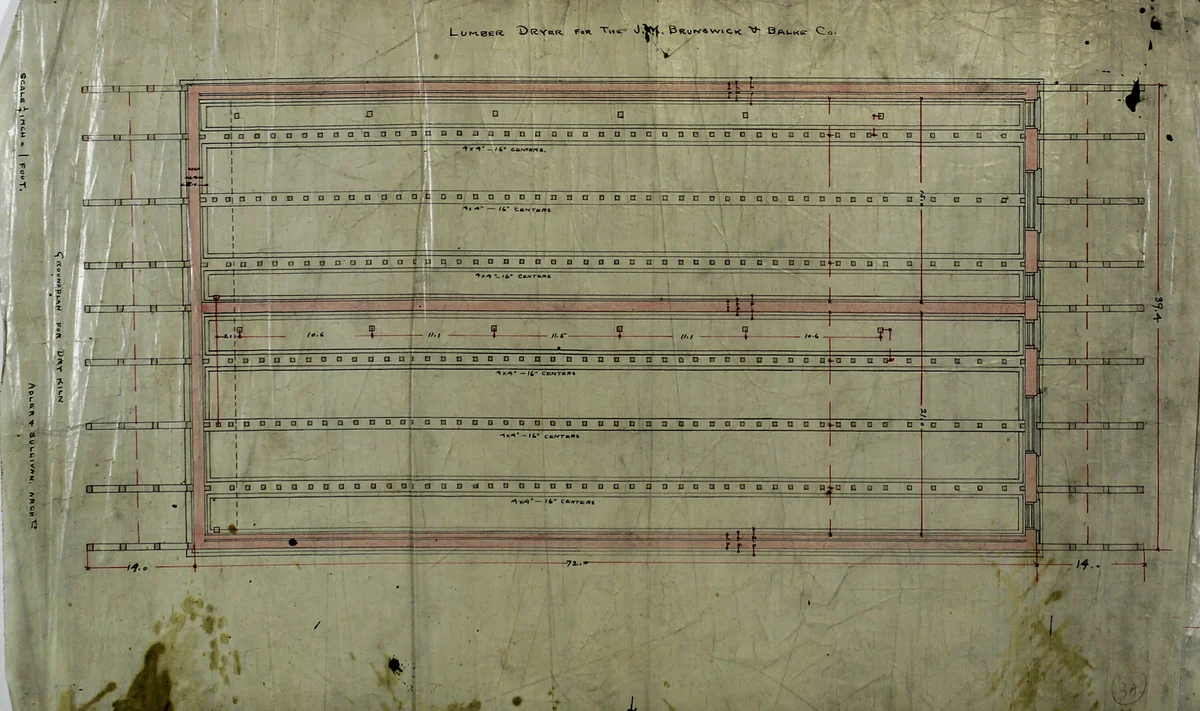 LUMBER DRYER FOR THE J.M. BRUNSWICK & BALKE CO.
SCALE ¼ INCH = 1 FOOT.
GROUNDPLAN FOR DRY KILN
ADLER & SULLIVAN. ARCHTS
4x4"–16" CENTERS.
4x4"–16" CENTERS
4x4"–16" CENTERS
10.6
11.1
11.5
11.1
10.6
4x4"–16" CENTERS
21.0
4x4"–16" CENTERS
4x4"–16" CENTERS
39.4
14.0
72.0
14.
3A